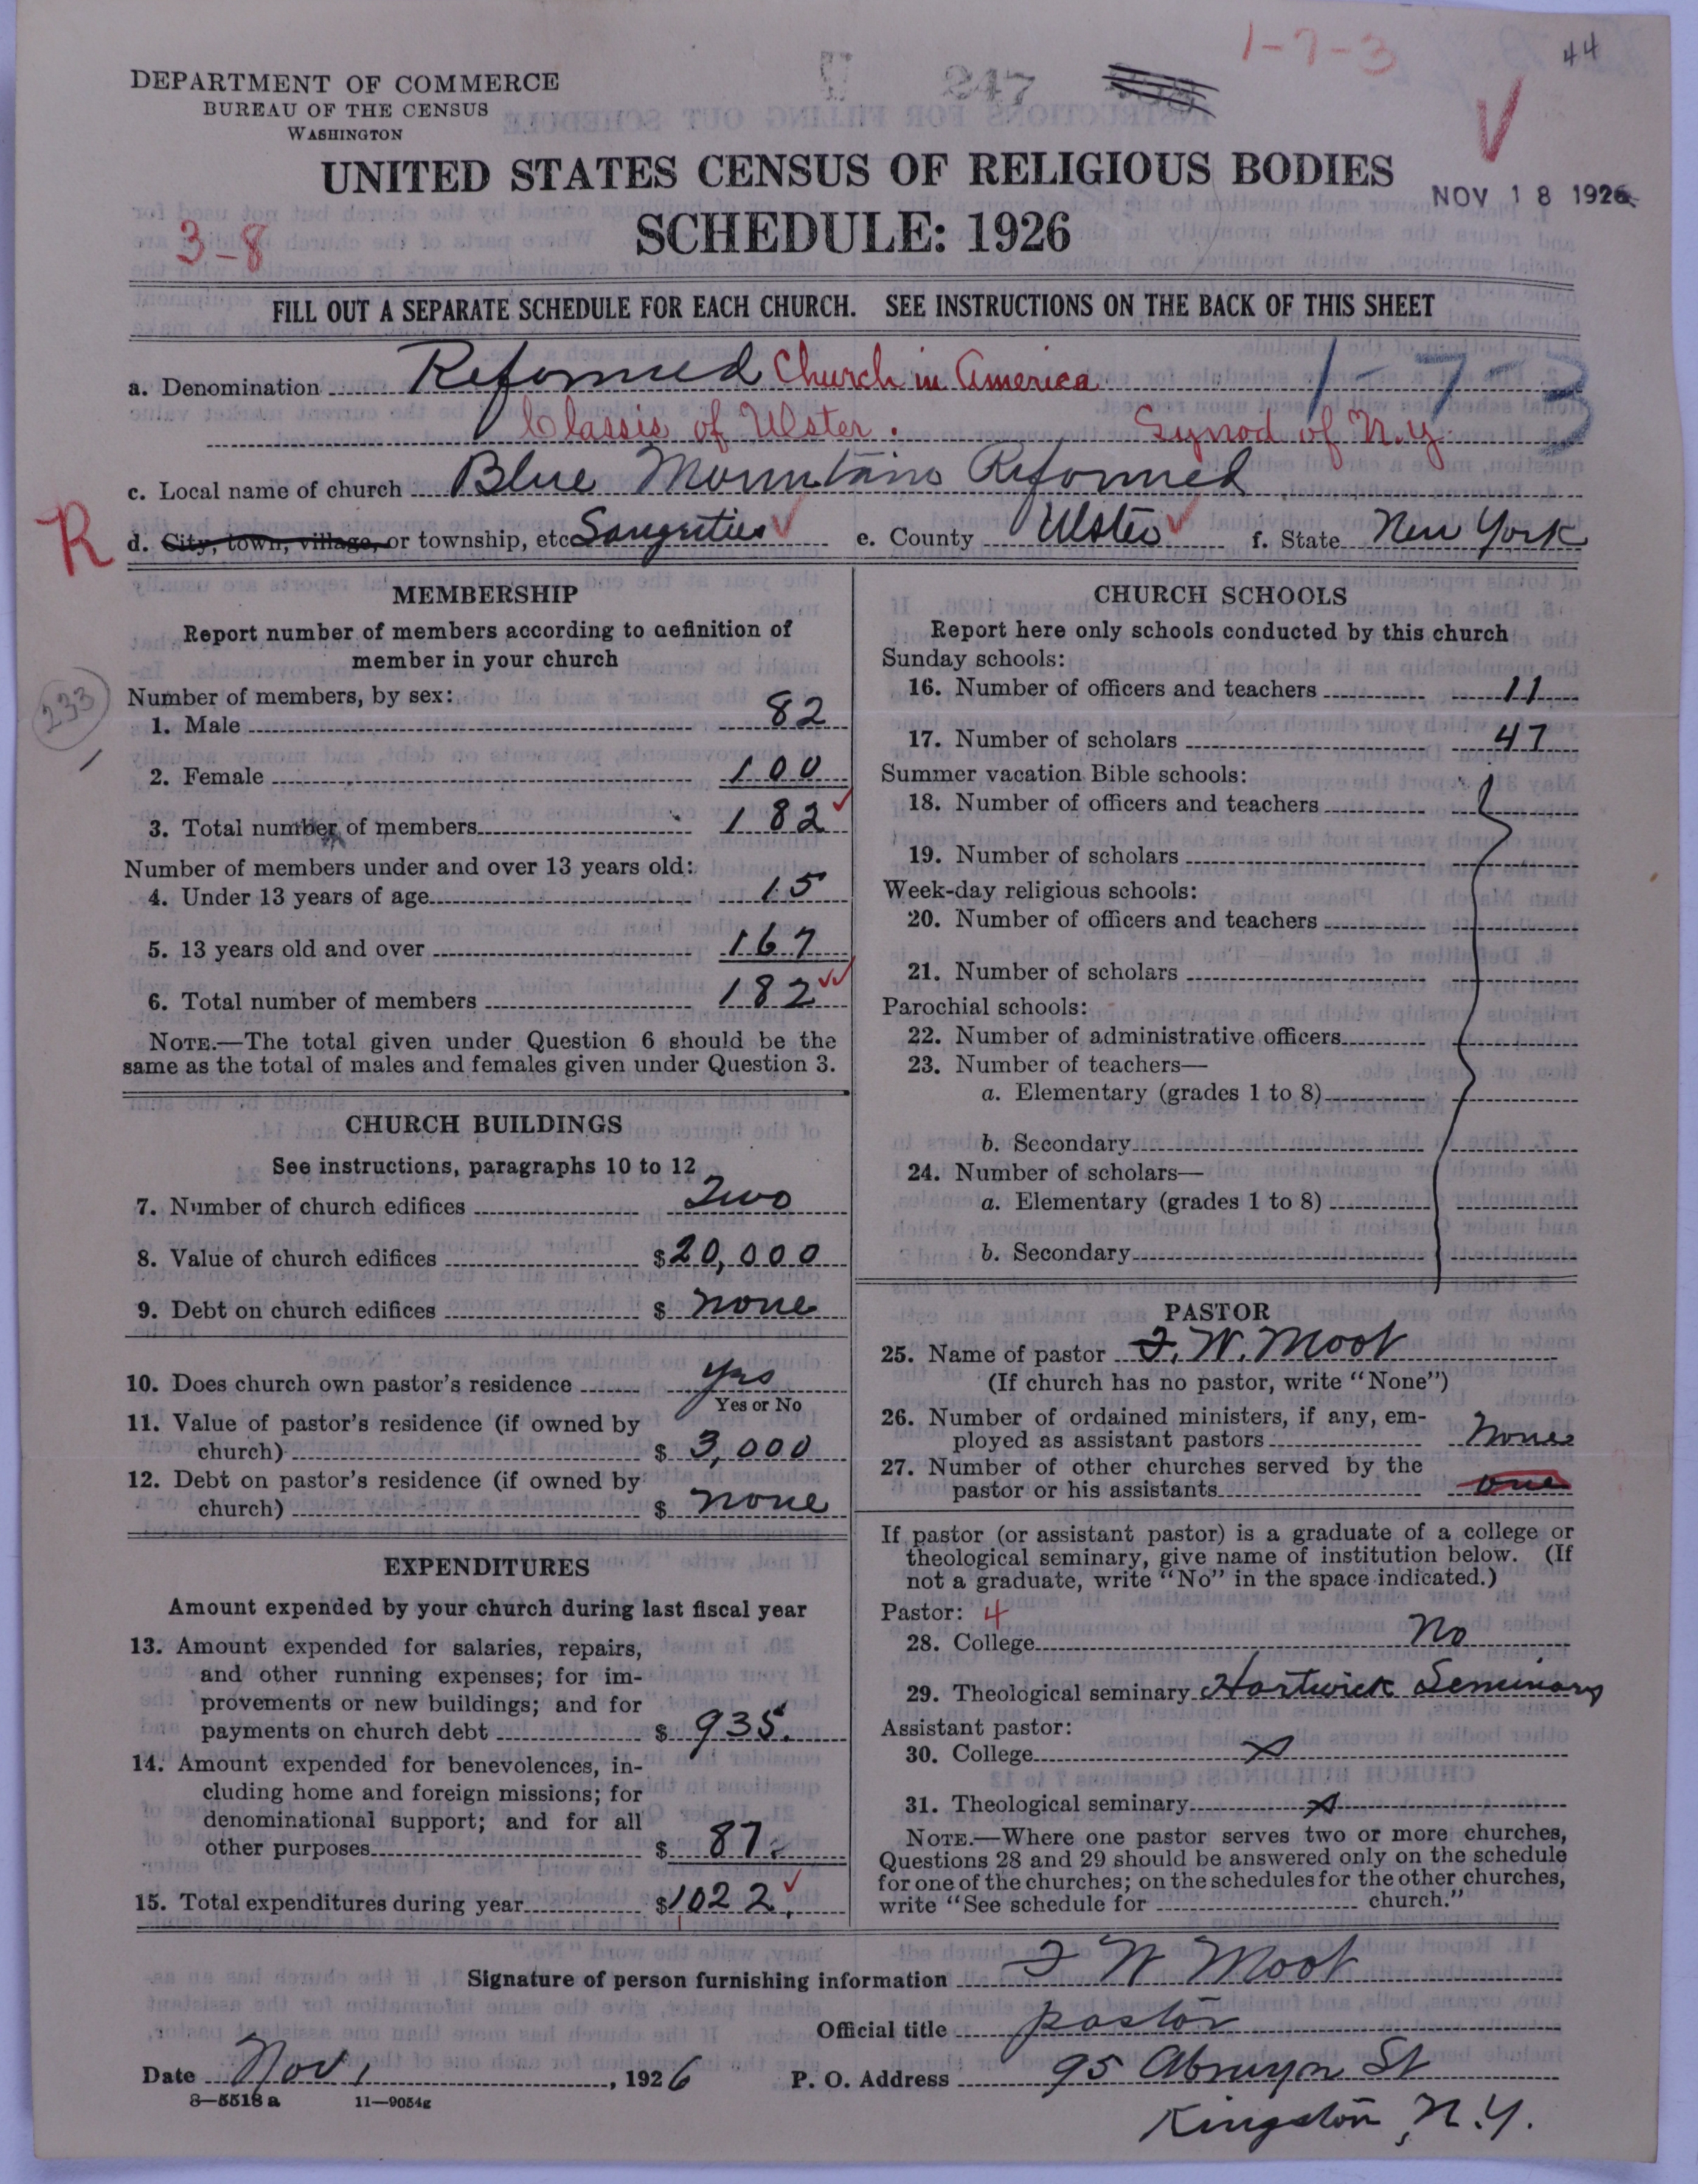 1-7-3
44
DEPARTMENT OF COMMERCE
BUREAU OF THE CENSUS
WASHINGTON
247
UNITED STATES CENSUS OF RELIGIOUS BODIES
NOV 18 1926
SCHEDULE: 1926
3-8
FILL OUT A SEPARATE SCHEDULE FOR EACH CHURCH. SEE INSTRUCTIONS ON THE BACK OF THIS SHEET
a. Denomination Reformed Church in America 1-7-3
Classis of Ulster. Synod of N.Y.
c. Local name of church Blue Mountain Reformed
R
d. City, town, village, or township, etc Saugerties e. County Ulster f. State New York
MEMBERSHIP
Report number of members according to definition of
member in your church
233
Number of members, by sex:
1. Male 82
2. Female 100
3. Total number of members 182
Number of members under and over 13 years old:
4. Under 13 years of age 15
5. 13 years old and over 167
6. Total number of members 182
NOTE.—The total given under Question 6 should be the
same as the total of males and females given under Question 3.
CHURCH BUILDINGS
See instructions, paragraphs 10 to 12
7. Number of church edifices Two
8. Value of church edifices $20,000
9. Debt on church edifices $ none
10. Does church own pastor's residence yes
Yes or No
11. Value of pastor's residence (if owned by
church) $ 3,000
12. Debt on pastor's residence (if owned by
church) $ none
EXPENDITURES
Amount expended by your church during last fiscal year
13. Amount expended for salaries, repairs,
and other running expenses; for im-
provements or new buildings; and for
payments on church debt $ 935.
14. Amount expended for benevolences, in-
cluding home and foreign missions; for
denominational support; and for all
other purposes $ 87.
15. Total expenditures during year $1022.
CHURCH SCHOOLS
Report here only schools conducted by this church
Sunday schools:
16. Number of officers and teachers 11
17. Number of scholars 47
Summer vacation Bible schools:
18. Number of officers and teachers
19. Number of scholars
Week-day religious schools:
20. Number of officers and teachers
21. Number of scholars
Parochial schools:
22. Number of administrative officers
23. Number of teachers—
a. Elementary (grades 1 to 8)
b. Secondary
24. Number of scholars—
a. Elementary (grades 1 to 8)
b. Secondary
PASTOR
25. Name of pastor F. W. Moot
(If church has no pastor, write "None")
26. Number of ordained ministers, if any, em-
ployed as assistant pastors None
27. Number of other churches served by the
pastor or his assistants one
If pastor (or assistant pastor) is a graduate of a college or
theological seminary, give name of institution below. (If
not a graduate, write "No" in the space indicated.)
Pastor: 4
28. College No
29. Theological seminary Hartwick Seminary
Assistant pastor:
30. College x
31. Theological seminary x
NOTE.—Where one pastor serves two or more churches,
Questions 28 and 29 should be answered only on the schedule
for one of the churches; on the schedules for the other churches,
write "See schedule for church."
Signature of person furnishing information F W Moot
Official title pastor
Date Nov 1, 1926 P. O. Address 95 Abruyn St
8-5518 a 11-9054g
Kingston, N.Y.